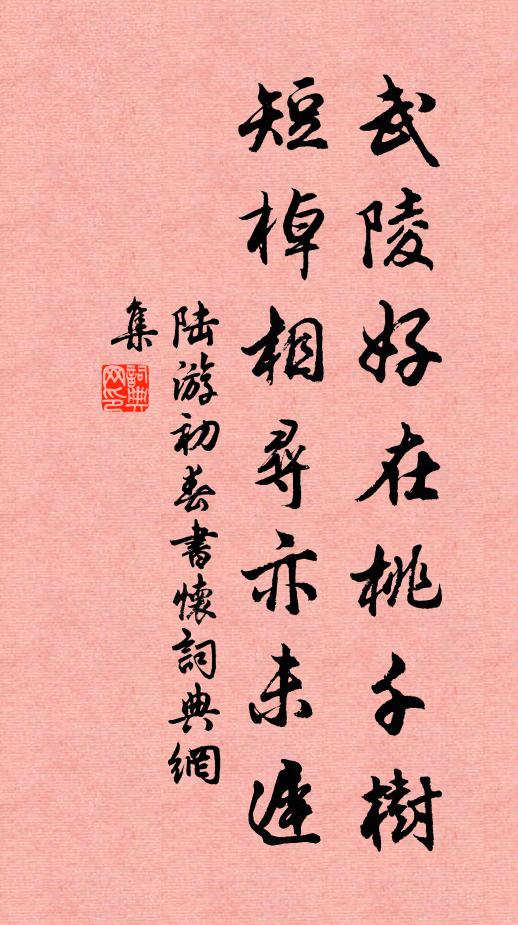 武陵好在桃千樹
短棹相尋亦未遲
陸游初春書懷詞典網
集
詞典
网印